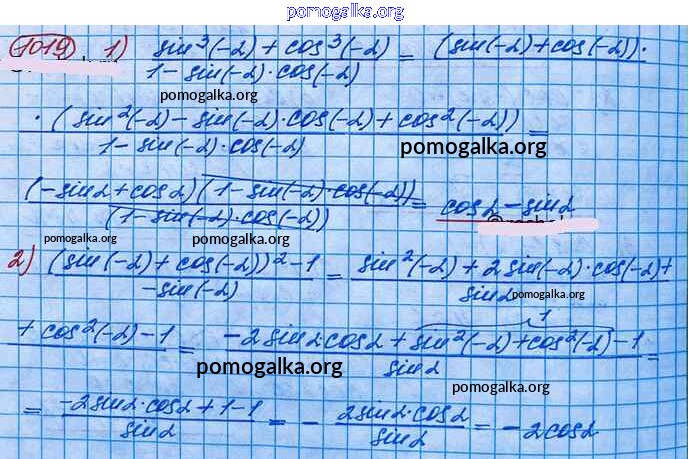 pomogalka.org
1019 1) sin³(-α) + cos³(-α) / 1 - sin(-α)·cos(-α) = (sin(-α)+cos(-α))·
pomogalka.org
·(sin²(-α) - sin(-α)·cos(-α) + cos²(-α)) / 1 - sin(-α)·cos(-α) =
pomogalka.org
(-sinα + cosα)(1 - sin(-α)·cos(-α)) / (1 - sin(-α)·cos(-α)) = cosα - sinα
pomogalka.org pomogalka.org
2) (sin(-α) + cos(-α))² - 1 / -sin(-α) = sin²(-α) + 2sin(-α)·cos(-α) + / sinα
pomogalka.org
+ cos²(-α) - 1 = -2sinα·cosα + sin²(-α) + cos²(-α) - 1 / sinα =
1
pomogalka.org
pomogalka.org
= -2sinα·cosα + 1 - 1 / sinα = - 2sinα·cosα / sinα = -2cosα